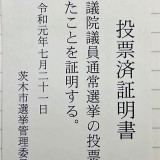 投票済証明書
議院議員通常選挙の投票
たことを証明する。
令和元年七月二十一日
茨木市選挙管理委員